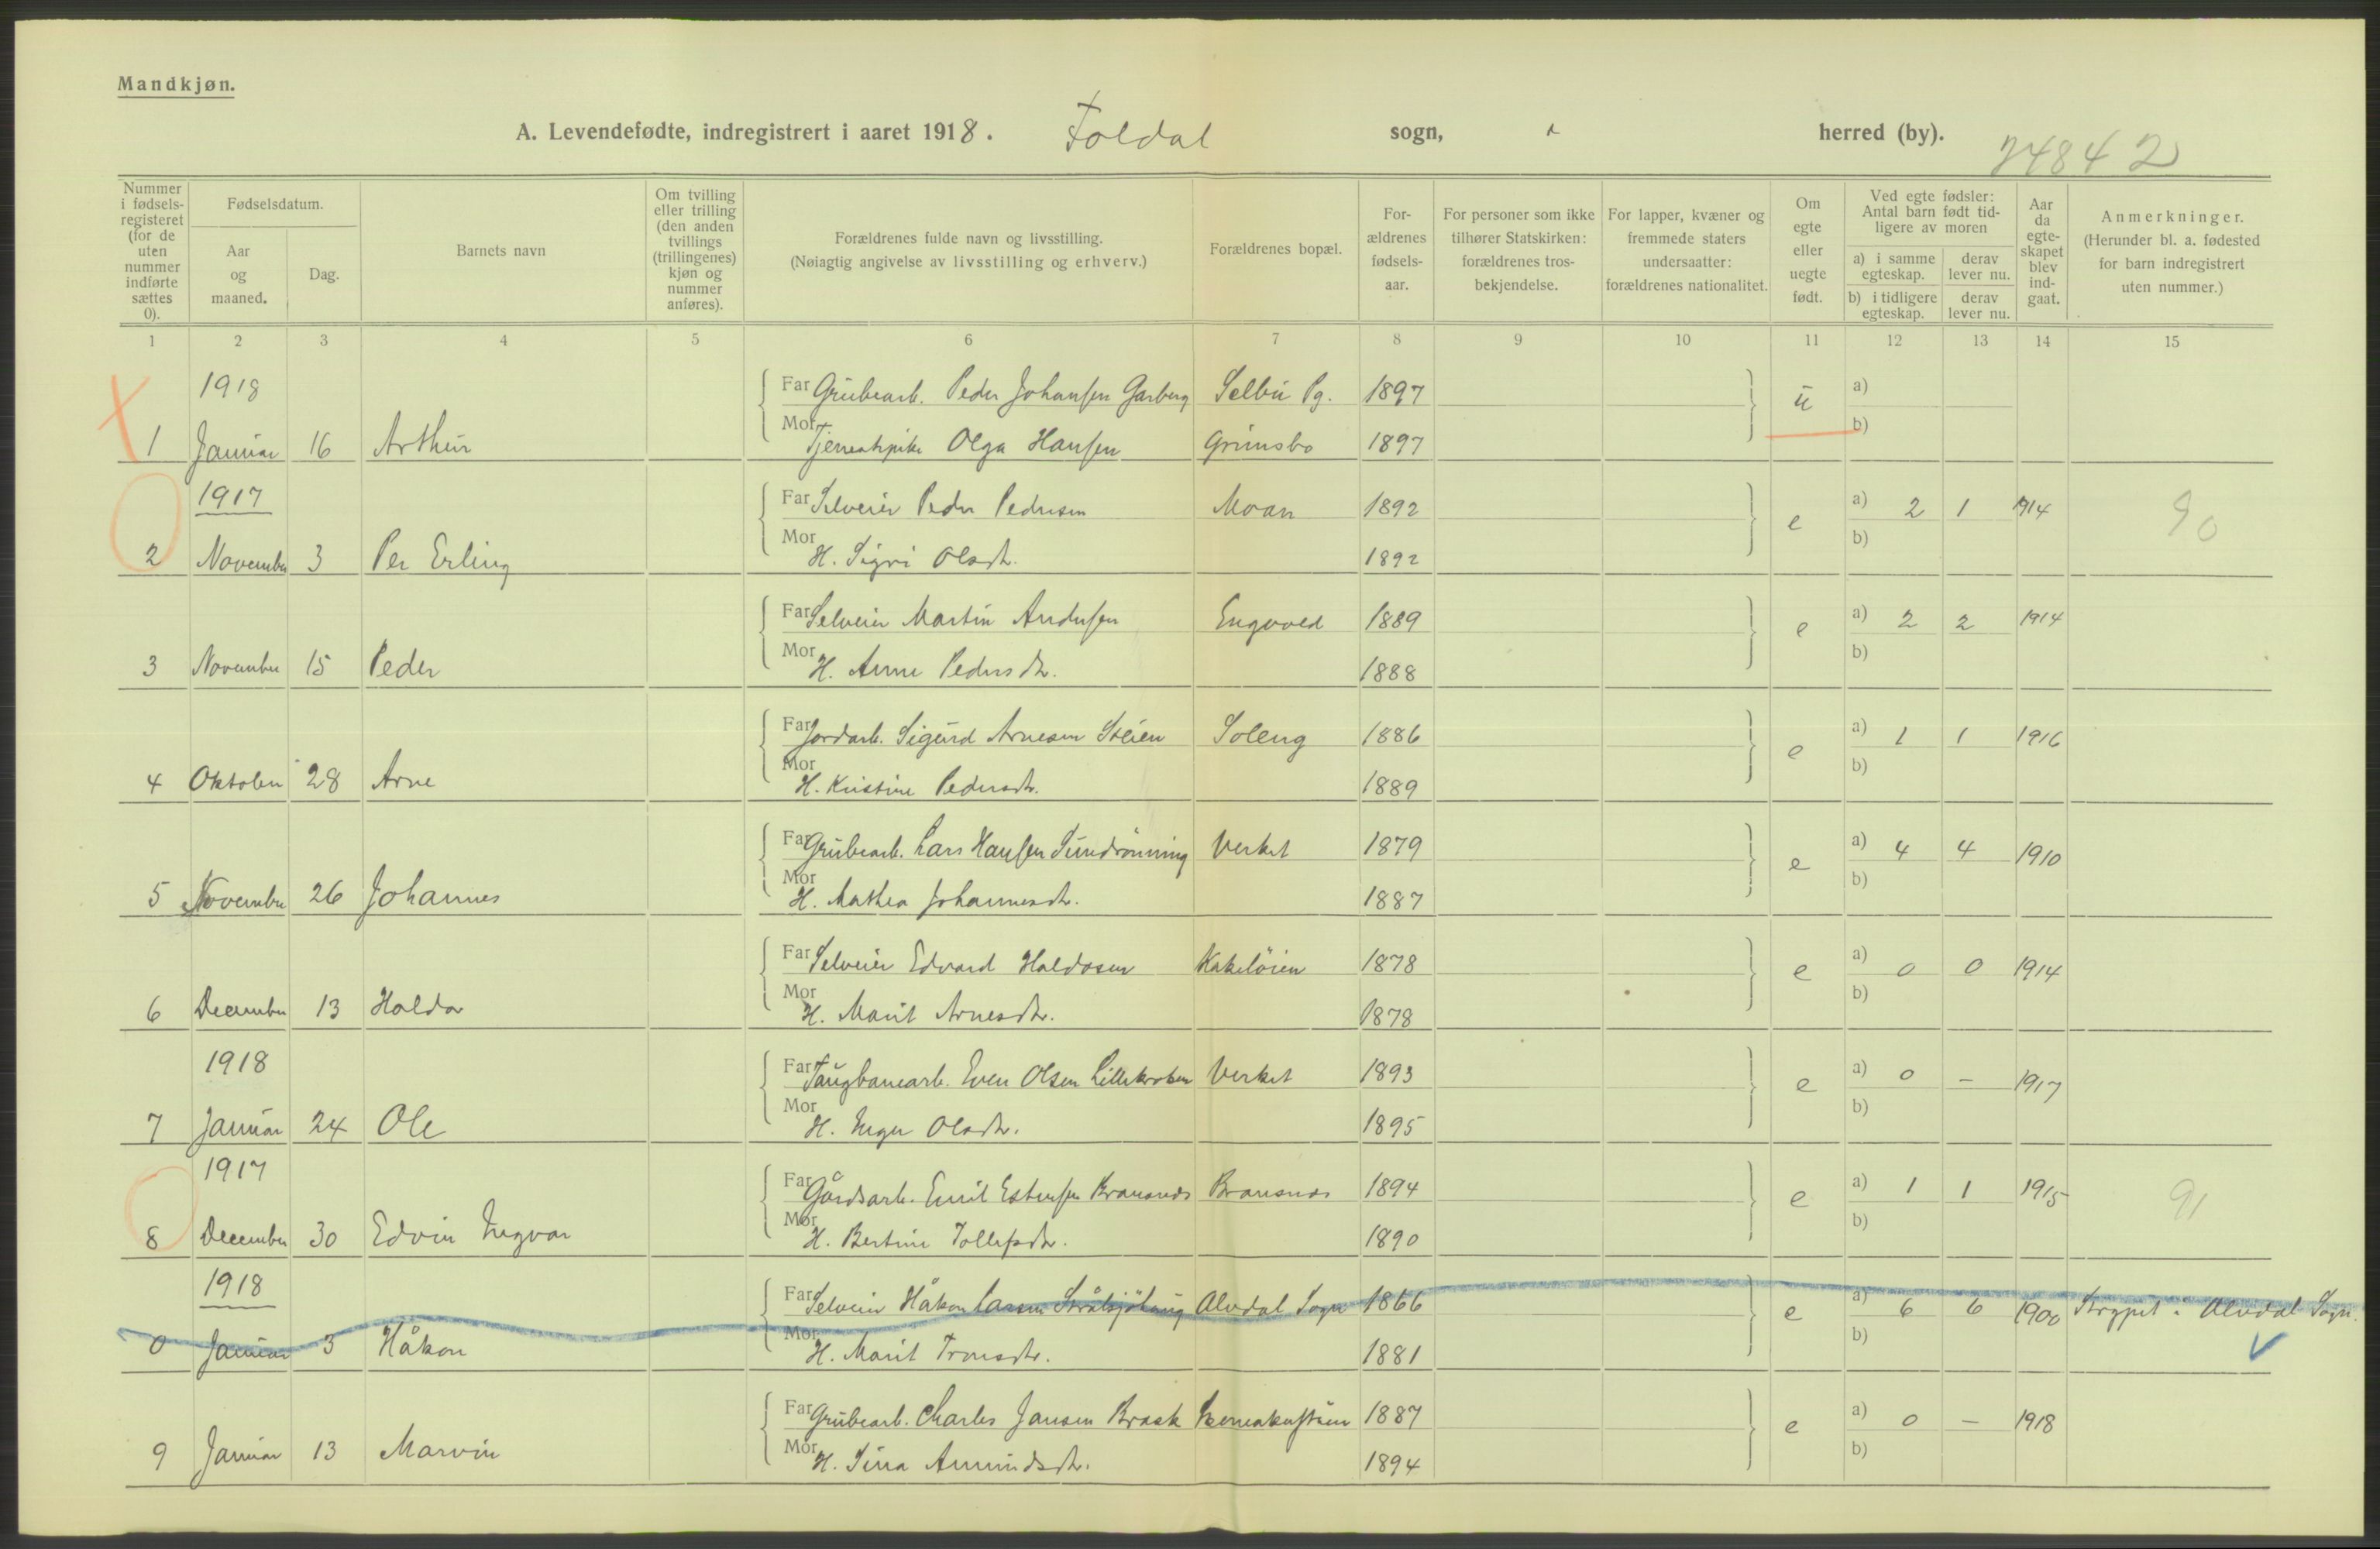 Mandkjøn.
A. Levendefødte, indregistrert i aaret 1918. Foldal sogn, herred (by).
24842
Nummer i fødselsregisteret (for de uten nummer indførte sættes 0).
Fødselsdatum.
Aar og maaned.
Dag.
Barnets navn
Om tvilling eller trilling (den anden tvillings (trillingenes) kjøn og nummer anføres).
Forældrenes fulde navn og livsstilling.
(Nøiagtig angivelse av livsstilling og erhverv.)
Forældrenes bopæl.
Forældrenes fødselsaar.
For personer som ikke tilhører Statskirken: forældrenes trosbekjendelse.
For lapper, kvæner og fremmede staters undersaatter: forældrenes nationalitet.
Om egte eller uegte født.
Ved egte fødsler: Antal barn født tidligere av moren
a) i samme egteskap.
derav lever nu.
b) i tidligere egteskap.
derav lever nu.
Aar da egteskapet blev indgaat.
Anmerkninger.
(Herunder bl. a. fødested for barn indregistrert uten nummer.)
1 2 3 4 5 6 7 8 9 10 11 12 13 14 15
1918 Far Grubearb. Peder Johansen Garberg Selbu Pg. 1897 u a)
1 Januar 16 Arthur Mor Tjenestpike Olga Hansen Grimsbo 1897 b)
1917 Far Selveier Peder Pedersen Moan 1892 e a) 2 1 1914 90
2 November 3 Per Erling Mor H. Sigri Olsdtr. 1892 b)
Far Selveier Martin Andersen Engvold 1889 e a) 2 2 1914
3 November 15 Peder Mor H. Anne Pedersdtr. 1888 b)
Far Jordarb. Sigurd Arnesen Steien Soleng 1886 e a) 1 1 1916
4 Oktober 28 Arne Mor H. Kristine Pedersdtr. 1889 b)
Far Grubearb. Lars Hansen Sundrønning Verket 1879 e a) 4 4 1910
5 November 26 Johannes Mor H. Mathea Johannesdtr. 1887 b)
Far Selveier Edvard Haldosen Kakeløien 1878 e a) 0 0 1914
6 December 13 Haldo Mor H. Marit Arnesdtr. 1878 b)
1918 Far Taugbanearb. Even Olsen Lillekroken Verket 1893 e a) 0 - 1917
7 Januar 24 Ole Mor H. Inger Olsdtr. 1895 b)
1917 Far Gårdsarb. Emil Estensen Bransnes Bransnes 1894 e a) 1 1 1915 91
8 December 30 Edvin Ingvar Mor H. Bertine Tollefsdtr. 1890 b)
1918 Far Selveier Håkon Larsen Alvdal Sogn 1866 e a) 6 6 1900 i Alvdal Sogn.
0 Januar 3 Håkon Mor H. Marit Tronsdtr. 1881 b)
Far Grubearb. Charles Jansen Brask 1887 e a) 0 - 1918
9 Januar 13 Marvin Mor H. Sina Amundsdtr. 1894 b)